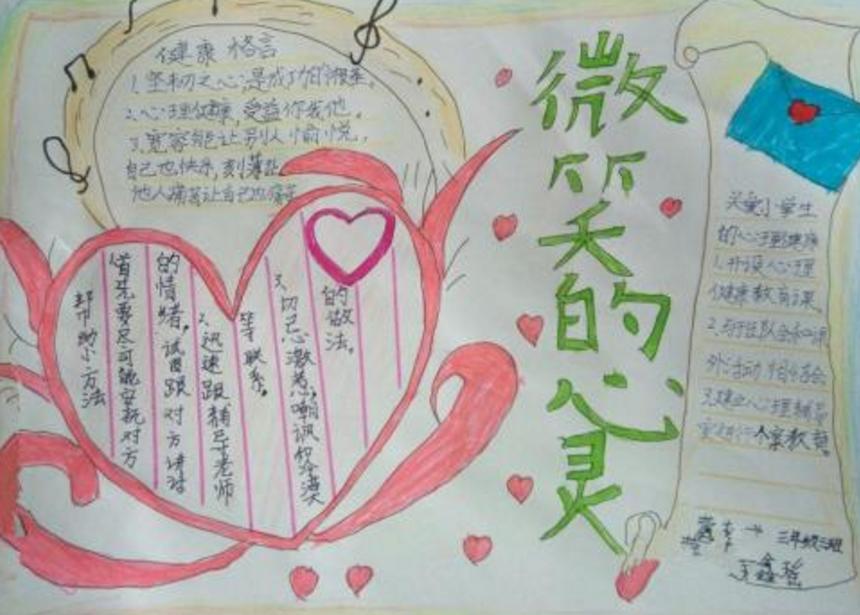 健康格言
1.坚韧之心,是成功的根基。
2.心理健康,受益你我他。
3.宽容能让别人愉悦,
自己也快乐,刻薄让
他人痛苦让自己也痛苦
微笑的心灵
帮助小方法
首先要尽可能安抚对方
的情绪,试图跟对方讲话
2.迅速跟辅导老师
等联系。
3.切忌激惹,嘲讽和冷漠
的做法。
关爱小学生
的心理健康
1.开设心理
健康教育课。
2.与班队会和课
外活动相结合
3.建立心理辅导
室进行个案教育。
三年级三班
王鑫瑶